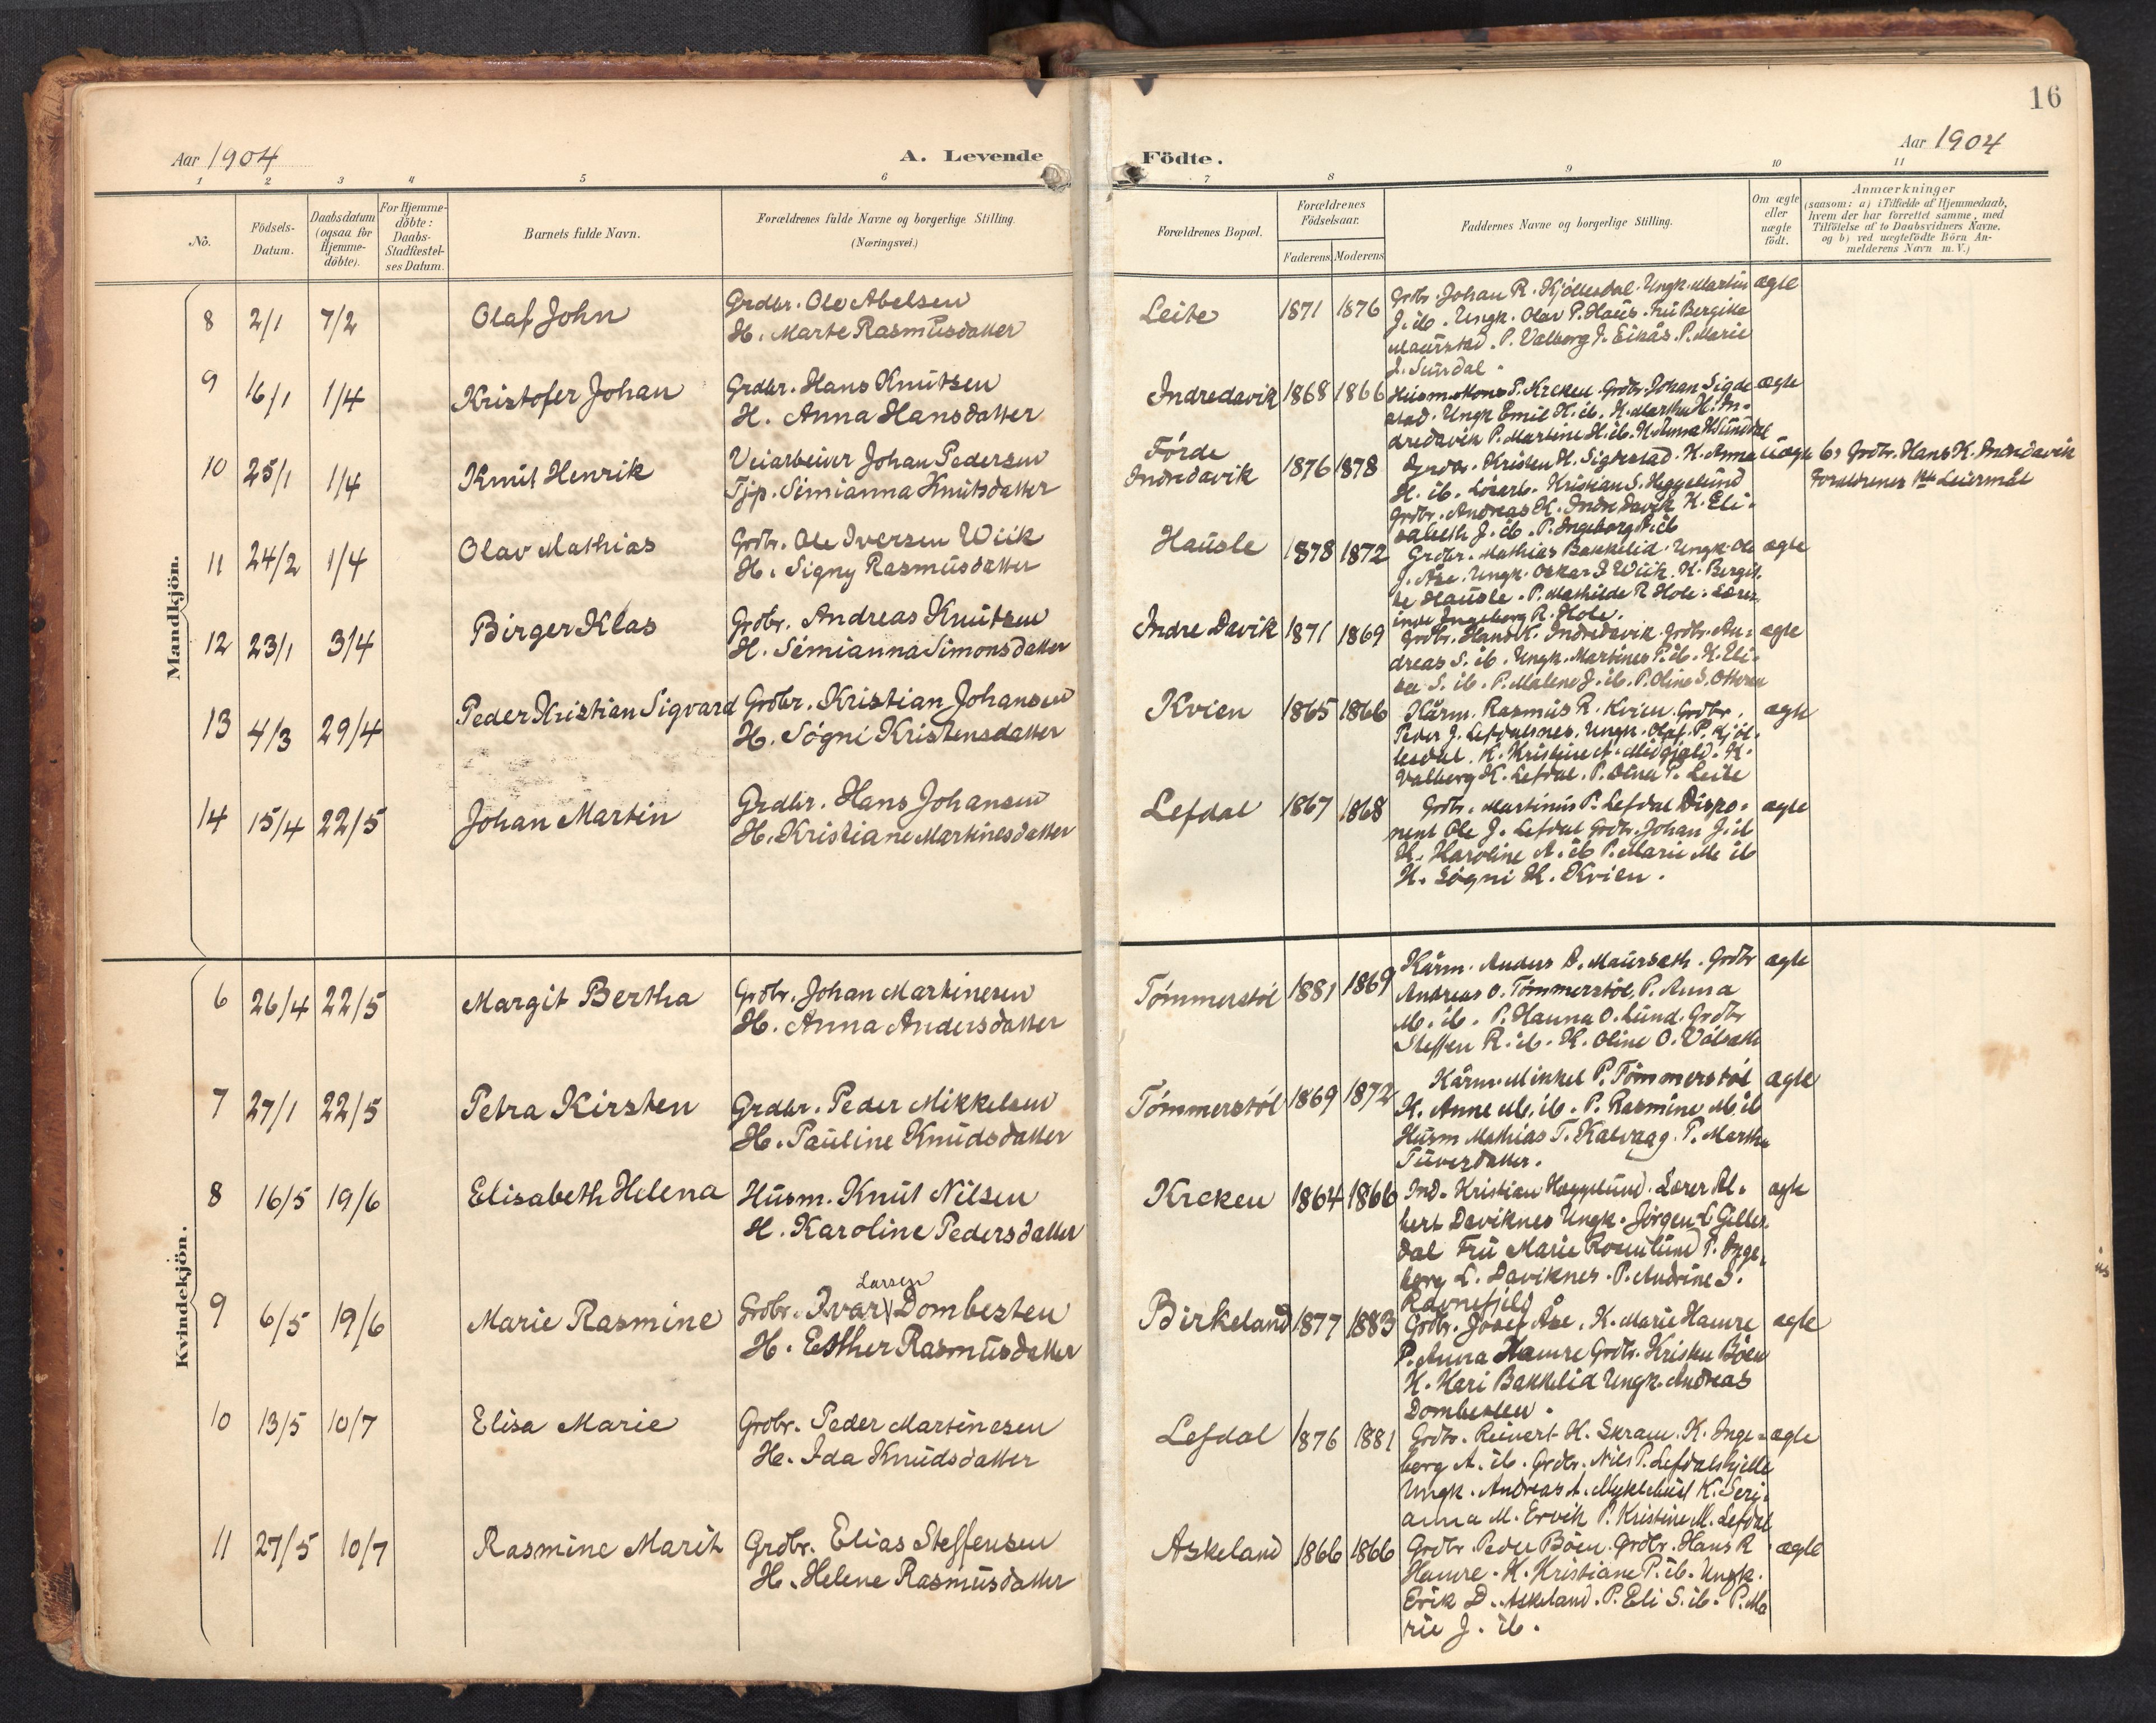 16
Aar 1904
A. Levende
Födte.
Aar 1904
1 2 3 4 5 6 7 8 9 10 11
No.
Födsels-Datum.
Daabsdatum (ogsaa for Hjemme-döbte).
For Hjemme-döbte: Daabs-Stadfæstel-ses Datum.
Barnets fulde Navn.
Forældrenes fulde Navne og borgerlige Stilling.
(Næringsvei.)
Forældrenes Bopæl.
Forældrenes Födselsaar.
Faderens Moderens
Faddernes Navne og borgerlige Stilling.
Om ægte eller uægte födt.
Anmærkninger
(saasom: a) i Tilfælde af Hjemmedaab,
hvem der har forrettet samme, med
Tilföielse af to Daabsvidners Navne,
og b) ved uægtefödte Börn An-
melderens Navn m. V.)
Mandkjön.
8 2/1 7/2 Olaf John
Grdbr. Ole Abelsen
H. Marte Rasmusdatter
Leite 1871 1876
Grdbr. Johan R. Kjöllesdal. Ungk. Martin
J. ib. Ungk. Olav P. Haus. Fru Bergitte
Maurstad. P. Valborg J. Eikås. P. Marie
J. Sundal.
ægte
9 16/1 1/4 Kristofer Johan
Grdbr. Hans Knutsen
H. Anna Hansdatter
Indredavik 1868 1866
Husm. Mons P. Kreken. Grdbr. Johan Sigde
stad. Ungk Emil H. ib. K. Martha H. In-
dredavik P. Martine H. ib. K. Anna K Sunddal
ægte
10 25/1 1/4 Knut Henrik
Veiarbeider Johan Pedersen
Tjp. Simianna Knutsdatter
Förde
Indredavik 1876 1878
Grdbr. Kristen H. Sigdestad. K. Anne
H. ib. Lösarb. Kristian S. Heggelund
Grdbr. Andreas K. Indre Davik K. Eli-
sabeth J. ib. P. Ingeborg A. ib
uægte
b, Grdbr. Hans K. Indredavik
Forældrenes 1ste Leiermål
11 24/2 1/4 Olav Mathias
Grdbr. Ole Iversen Wiik
H. Signy Rasmusdatter
Hausle 1878 1872
Grdbr. Mathias Bakkelid. Ungk. Ole
J. Åse. Ungk. Oskar I Wiik. K. Bergit-
te Hausle. P. Mathilde R Hole. Lærer-
inde Ingeborg R. Hole.
ægte
12 23/1 3/4 Birger Klas
Grdbr. Andreas Knutsen
H. Simianna Simonsdatter
Indre Davik 1871 1869
Grdbr. Hans K. Indredavik. Grdbr. An-
dreas S. ib. Ungk. Martines P. ib. K. Eli-
se S. ib. P. Malene J. ib. P. Oline S. Otteren
ægte
13 4/3 29/4 Peder Kristian Sigvard
Grdbr. Kristian Johansen
H. Sögni Kristensdatter
Kvien 1865 1866
Kårm. Rasmus R. Kvien. Grdbr.
Peder J. Lefdalsnes. Ungk. Olaf P. Kjöl-
lesdal. K. Kristine A. Midgjeld. K.
Valborg K. Lefdal. P. Olina P. Leite
ægte
14 15/4 22/5 Johan Martin
Grdbr. Hans Johansen
H. Kristiane Martinesdatter
Lefdal 1867 1868
Grdbr. Martinus P. Lefdal Dispo-
nent Ole J. Lefdal Grdbr. Johan J. ib
K. Karoline A. ib P. Marie M. ib
K. Sögni K. Kvien.
ægte
Kvindekjön.
6 26/4 22/5 Margit Bertha
Grdbr. Johan Martinesen
H. Anna Andersdatter
Tömmerstöl 1881 1869
Kårm. Anders D. Maurseth. Grdbr
Andreas O. Tömmerstöl. P. Anna
M. ib. P. Hanna O. Lund. Grdbr
Steffen R. ib. K. Oline O. Välseth
ægte
7 27/1 22/5 Petra Kirsten
Grdbr. Peder Mikkelsen
H. Pauline Knudsdatter
Tömmerstöl 1869 1872
Kårm. Mikkel P. Tömmerstöl
K. Anne M. ib. P. Rasmine M. ib
Husm Mathias T. Kalvaag. P. Martha
Siversdatter.
ægte
8 16/5 19/6 Elisabeth Helena
Husm. Knut Nilsen
H. Karoline Pedersdatter
Kreken 1864 1866
Ind. Kristian Heggelund. Lærer Al-
bert Daviknes Ungk. Jörgen C Gilles-
dal Fru Marie Rosenlund P. Inge-
borg L. Daviknes. P. Andrine S.
Ravnefjeld
ægte
9 6/5 19/6 Marie Rasmine
Larsen
Grdbr. Ivar Dombesten
H. Esther Rasmusdatter
Birkeland 1877 1883
Grdbr. Josef Åse. K. Marie Hamre
P. Anna Hamre Grdbr. Kristen Böen
K. Kari Bakkelid Ungk. Andreas
Dombesten.
ægte
10 13/5 10/7 Elisa Marie
Grdbr. Peder Martinesen
H. Ida Knudsdatter
Lefdal 1876 1881
Grdbr. Reinert H. Skram. K. Inge-
borg A. ib. Grdbr. Nils P. Lefdalshjelle
Ungk. Andreas A. Myklebust K. Seri-
anna M. Ervik P. Kristine M. Lefdal
ægte
11 27/5 10/7 Rasmine Marit
Grdbr. Elias Steffensen
H. Helene Rasmusdatter
Askeland 1866 1866
Grdbr. Peder Böen. Grdbr. Hans R
Hamre. K. Kristiane P. ib. Ungk.
Erik D. Askeland. P. Eli S. ib. P. Ma
rie J. ib.
ægte